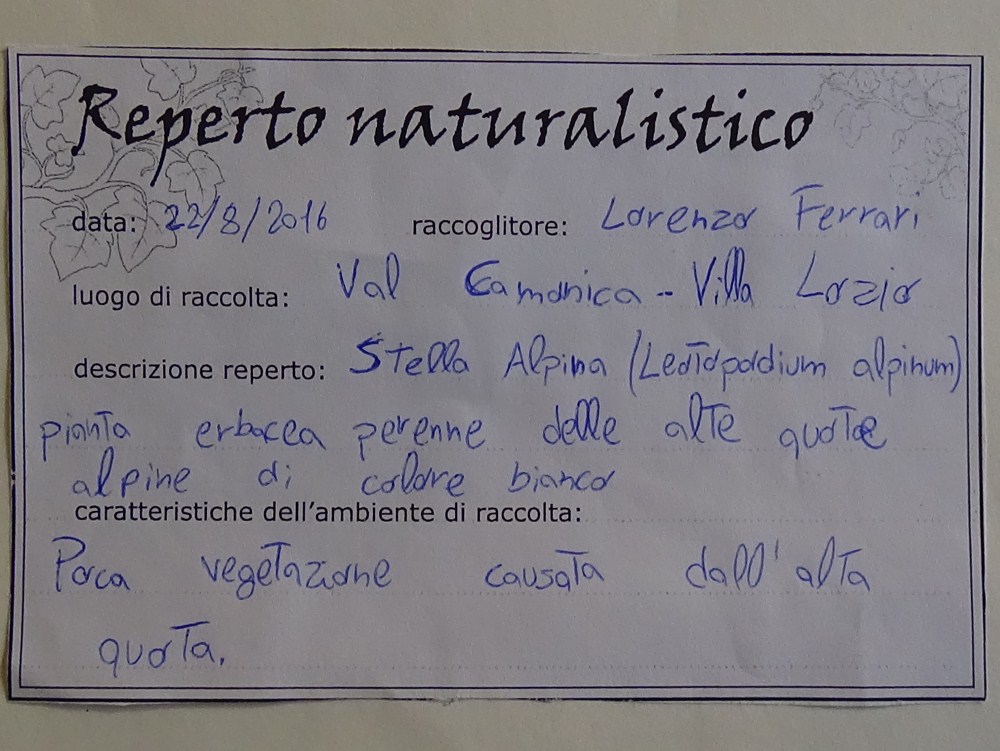 Reperto naturalistico
data: 22/8/2016 raccoglitore: Lorenzo Ferrari
luogo di raccolta: Val Camonica - Villa Lozio
descrizione reperto: Stella Alpina (Leotopodium alpinum)
pianta erbacea perenne delle alte quote
alpine di colore bianco
caratteristiche dell'ambiente di raccolta:
Poca vegetazione causata dall'alta
quota.